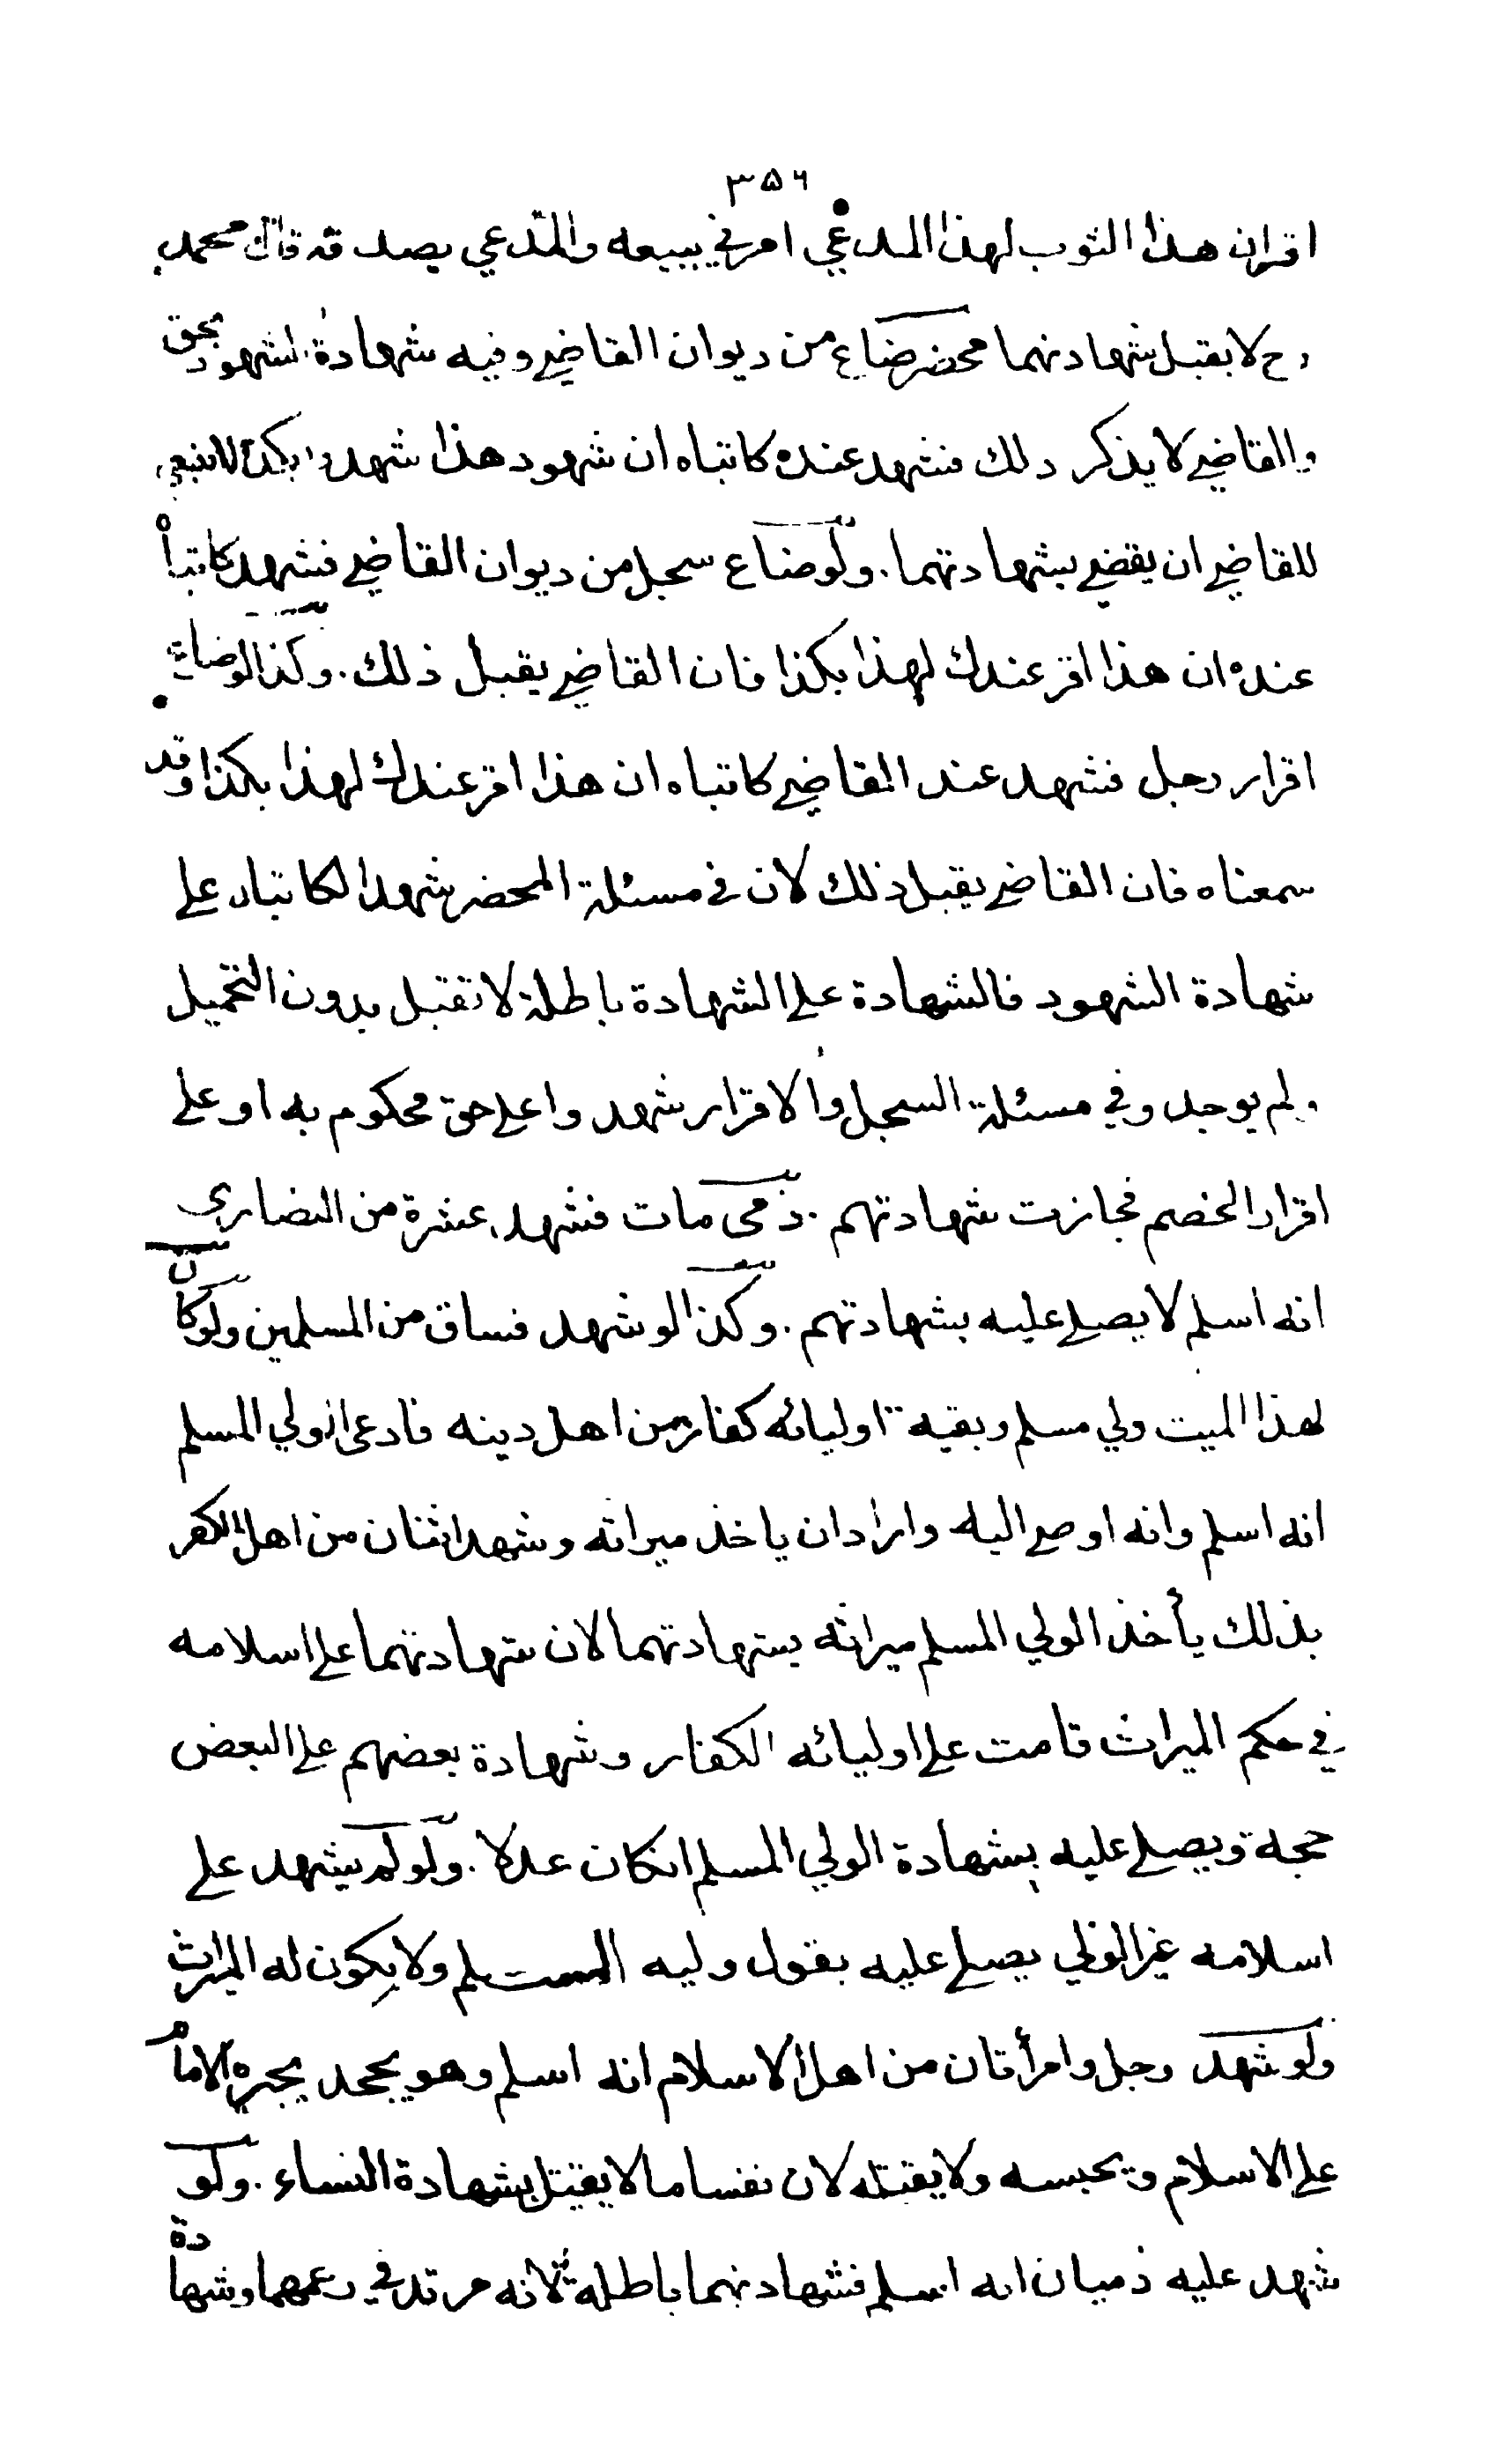 ٣٥٦
اقر ان هذا الثوب لهذا المدعي امرني ببيعه والمدعي يصدقه قال محمد
رح لا يقبل شهادتهما محضر ضاع من ديوان القاضي وفيه شهادة الشهود بحق
والقاضي لا يذكر ذلك فشهد عنده كاتباه ان شهود هذا شهدوا بكذا لا ينبغي
للقاضي ان يقضي بشهادتهما . ولو ضاع سجل من ديوان القاضي فشهد كاتباه
عنده ان هذا اقر عندك لهذا بكذا فان القاضي يقبل ذلك . وكذا لو ضاع
اقرار رجل فشهد عند القاضي كاتباه ان هذا اقر عندك لهذا بكذا وقد
سمعناه فان القاضي يقبل ذلك لان في مسئلة المحضر شهد الكاتبان على
شهادة الشهود فالشهادة على الشهادة باطلة لا تقبل بدون التحميل
ولم يوجد وفي مسئلة السجل والاقرار شهدوا على حق محكوم به او على
اقرار الخصم فجازت شهادتهم . ذمى مات فشهد عشرة من النصارى
انه اسلم لا يصلى عليه بشهادتهم . وكذا لو شهد فساق من المسلمين ولو كان
لهذا الميت ولي مسلم وبقية اوليائه كفار من اهل دينه فادعى الولي المسلم
انه اسلم وانه اوصى اليه واراد ان ياخذ ميراثه وشهد اثنان من اهل الكفر
بذلك يأخذ الولي المسلم ميراثه بشهادتهما لان شهادتهما على اسلامه
في حكم الميراث قامت على اوليائه الكفار وشهادة بعضهم على البعض
حجة ويصلى عليه بشهادة الولي المسلم انكان عدلا . ولو لم يشهد على
اسلامه غير الولي يصلى عليه بقول وليه المسلم ولا يكون له الميراث
ولو شهد رجل وامرأتان من اهل الاسلام انه اسلم وهو يجحد يجبره الامام
على الاسلام ويحبسه ولا يقتله لان نفسا ما لا يقتل بشهادة النساء . ولو
شهد عليه ذميان انه اسلم فشهادتهما باطلة لانه مرتد في زعمهما وشهادة